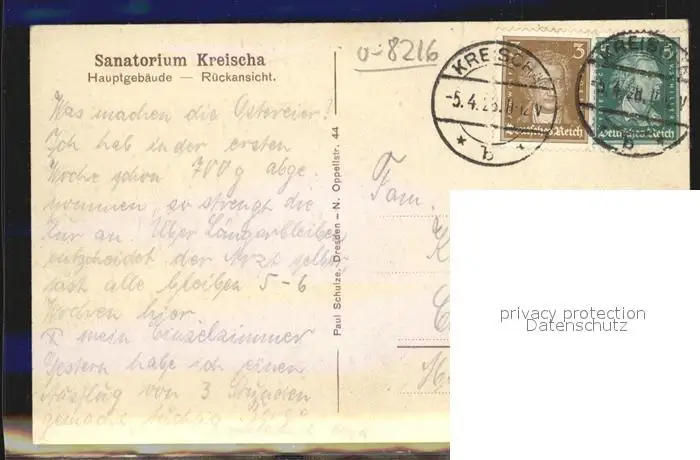 Sanatorium Kreischa
Hauptgebäude — Rückansicht.
o-8216
KREISCHA
-5.4.28.11-12V
* b *
3
Deutsches Reich
KREISCHA
-5.4.28.
b
Deutsches Reich
Was machen die Ostereier?
Ich hab in der ersten
Woche schon 700 g abge
nommen, so strengt die
Kur an. Über Längerbleiben
entscheidet der Arzt selbst
fast alle bleiben 5-6
Wochen hier.
mein Einzelzimmer
Gestern habe ich einen
Ausflug von 3 Stunden
gemacht, tüchtig
Paul Schulze, Dresden — N. Oppellstr. 44
Fam.
privacy protection
Datenschutz